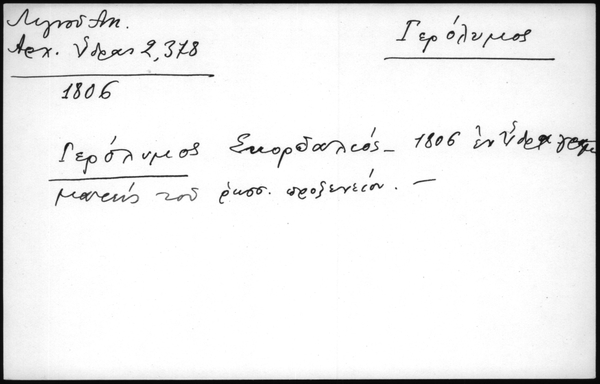 Λιγνοῦ Αντ.
Ἀρχ. Ὕδρας 2,378
Γερόλυμος
1806
Γερόλυμος Σκορδαλιός - 1806 ἐν Ὕδρᾳ γραμ
ματεύς τοῦ ρωσσ. προξενείου. —